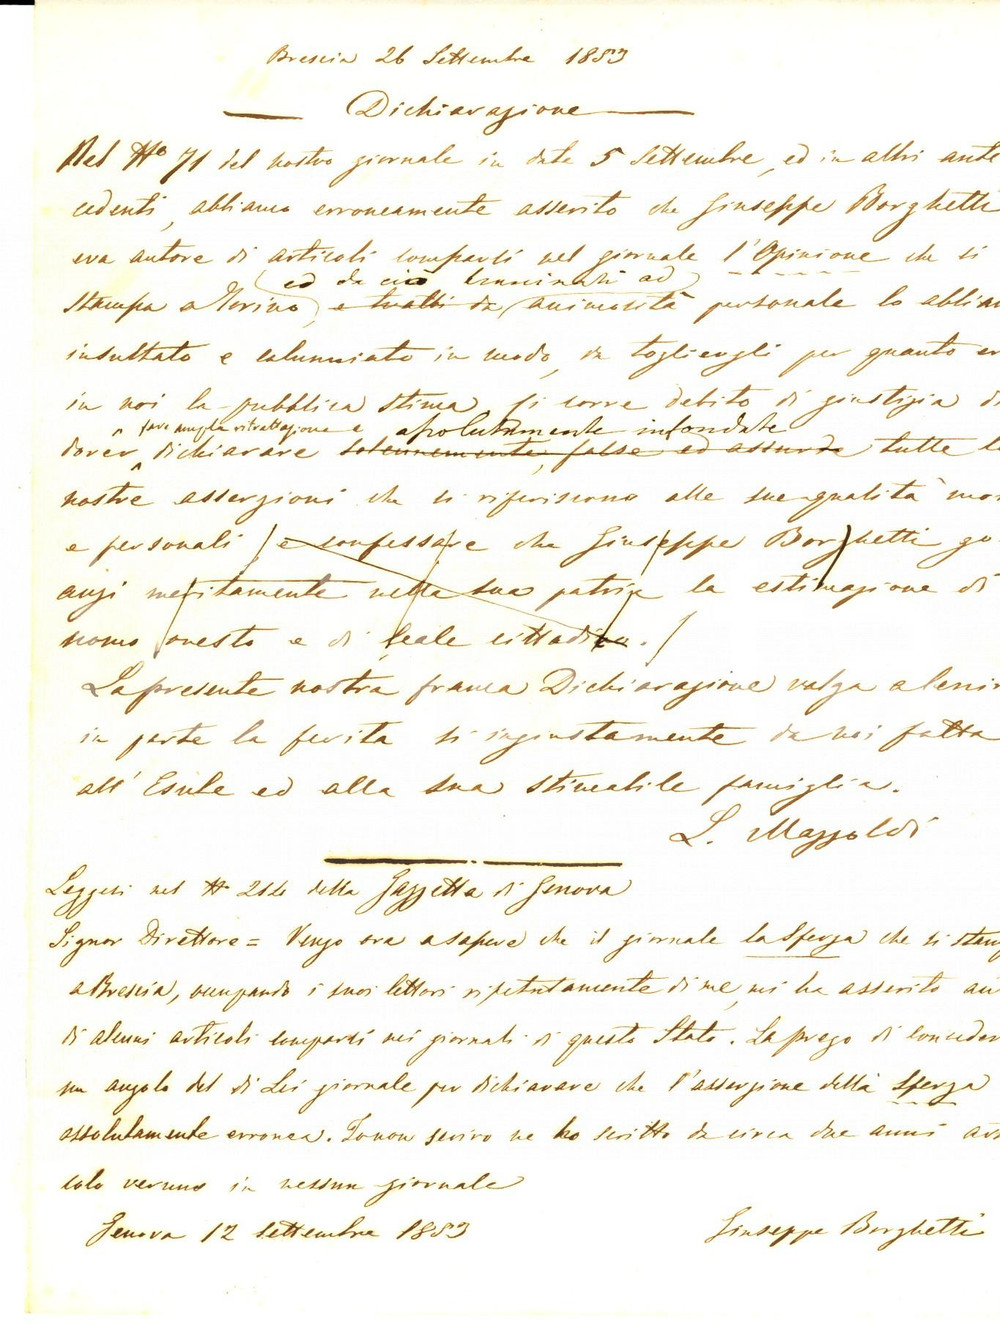 Brescia 26 Settembre 1853
Dichiarazione
Nel N° 71 del nostro giornale in data 5 Settembre, ed in altri ante
cedenti, abbiamo erroneamente asserito che Giuseppe Borghetti
era autore di articoli comparsi nel giornale l'Opinione che si
ed da ciò trascinati ad
stampa a Torino, e tratti da animosità personale lo abbiam
insultato e calunniato in modo, da togliergli per quanto er
in noi la pubblica stima, si corre debito di giustizia di
fare ampla ritrattazione e assolutamente infondate
dover dichiarare solennemente, false ed assurde tutte le
nostre asserzioni che si riferiscono alle sue qualità mor
e personali e confessare che Giuseppe Borghetti go
anzi meritamente nella sua patria la estimazione di
uomo onesto e di leale cittadino.
La presente nostra franca Dichiarazione valga a lenir
in parte la ferita sì ingiustamente da noi fatta
all'Esule ed alla sua stimabile famiglia.
L. Mazzoldi
Leggesi nel N° 214 della Gazzetta di Genova
Signor Direttore = Vengo ora a sapere che il giornale la Sferza che si stamp
a Brescia, occupando i suoi lettori ripetutamente di me, mi ha asserito au
di alcuni articoli comparsi nei giornali di questo Stato. La prego di conceder
un angolo del di Lei giornale per dichiarare che l'asserzione della Sferza
assolutamente erronea. Io non scrivo ne ho scritto da circa due anni art
colo veruno in nessun giornale
Genova 12 Settembre 1853
Giuseppe Borghetti